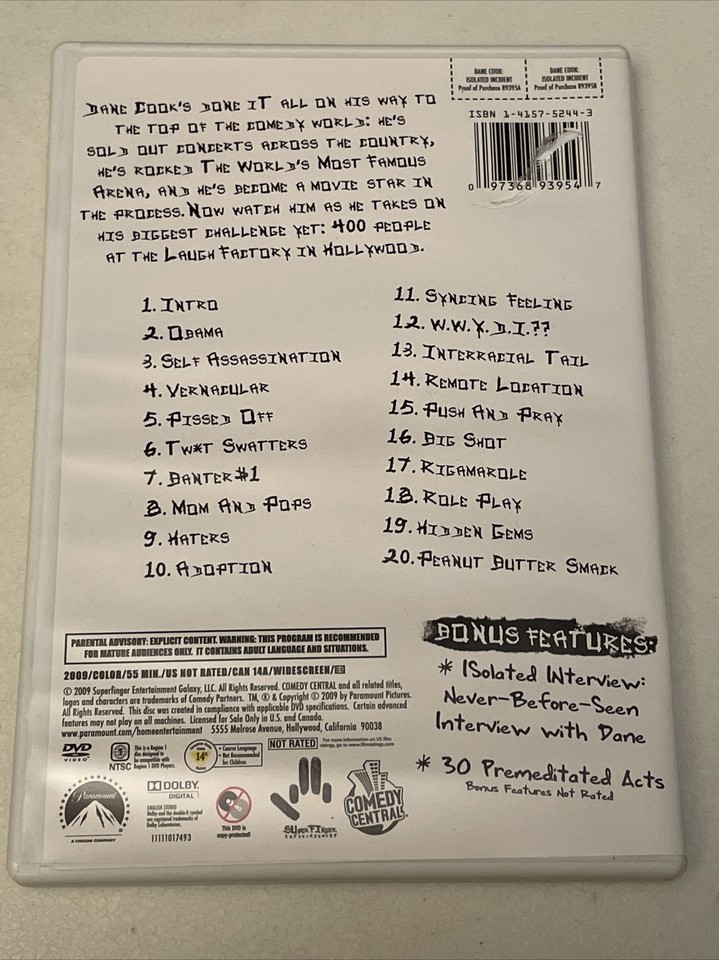 DANE COOK: ISOLATED INCIDENT Proof of Purchase 89395A
DANE COOK: ISOLATED INCIDENT Proof of Purchase 89395B
ISBN 1-4157-5244-3
0 97368 93954 7
DANE COOK'S DONE IT ALL ON HIS WAY TO
THE TOP OF THE COMEDY WORLD: HE'S
SOLD OUT CONCERTS ACROSS THE COUNTRY,
HE'S ROCKED THE WORLD'S MOST FAMOUS
ARENA, AND HE'S BECOME A MOVIE STAR IN
THE PROCESS. NOW WATCH HIM AS HE TAKES ON
HIS BIGGEST CHALLENGE YET: 400 PEOPLE
AT THE LAUGH FACTORY IN HOLLYWOOD.
1. INTRO
2. OBAMA
3. SELF ASSASSINATION
4. VERNACULAR
5. PISSED OFF
6. TW*T SWATTERS
7. BANTER #1
8. MOM AND POPS
9. HATERS
10. ADOPTION
11. SYNCING FEELING
12. W.W.Y.D.I.??
13. INTERRACIAL TAIL
14. REMOTE LOCATION
15. PUSH AND PRAY
16. BIG SHOT
17. RIGAMAROLE
18. ROLE PLAY
19. HIDDEN GEMS
20. PEANUT BUTTER SMACK
PARENTAL ADVISORY: EXPLICIT CONTENT. WARNING: THIS PROGRAM IS RECOMMENDED
FOR MATURE AUDIENCES ONLY. IT CONTAINS ADULT LANGUAGE AND SITUATIONS.
2009/COLOR/55 MIN./US NOT RATED/CAN 14A/WIDESCREEN/CC
© 2009 Superfinger Entertainment Galaxy, LLC. All Rights Reserved. COMEDY CENTRAL and all related titles,
logos and characters are trademarks of Comedy Partners. TM, ® & Copyright © 2009 by Paramount Pictures.
All Rights Reserved. This disc was created in compliance with applicable DVD specifications. Certain advanced
features may not play on all machines. Licensed for Sale Only in U.S. and Canada.
www.paramount.com/homeentertainment 5555 Melrose Avenue, Hollywood, California 90038
DVD VIDEO
NTSC
This is a Region 1 disc designed to be compatible with Region 1 DVD Players.
14A
• Coarse Language
• Not Recommended for Children
NOT RATED
For more information on US film ratings, go to www.filmratings.com
Paramount
A VIACOM COMPANY
DOLBY DIGITAL
ENGLISH STEREO
Dolby and the double-D symbol are registered trademarks of Dolby Laboratories.
11111017493
This DVD is copy-protected!
SUPERFINGER
COMEDY CENTRAL
BONUS FEATURES:
* ISolated INterview:
Never-Before-Seen
Interview with Dane
* 30 Premeditated Acts
Bonus Features Not Rated